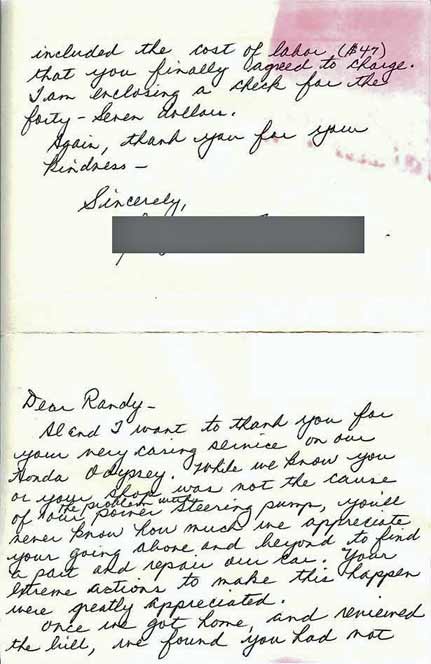 included the cost of labor ($47)
that you finally agreed to charge.
I am enclosing a check for the
forty-seven dollars.
Again, thank you for your
kindness—
Sincerely,
Dear Randy—
Al and I want to thank you for
your very caring service on our
Honda Odyssey. While we know you
or your shop was not the cause
of the problem with our power steering pump, you'll
never know how much we appreciate
your going above and beyond to find
a part and repair our car. Your
extreme actions to make this happen
were greatly appreciated.
Once we got home, and reviewed
the bill, we found you had not